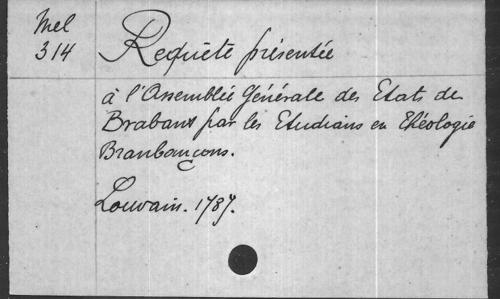 Mel
314
Requête présentée
à l'Assemblée Générale des Etats de
Brabant par les Etudians en Théologie
Branbançons.
Louvain. 1787.